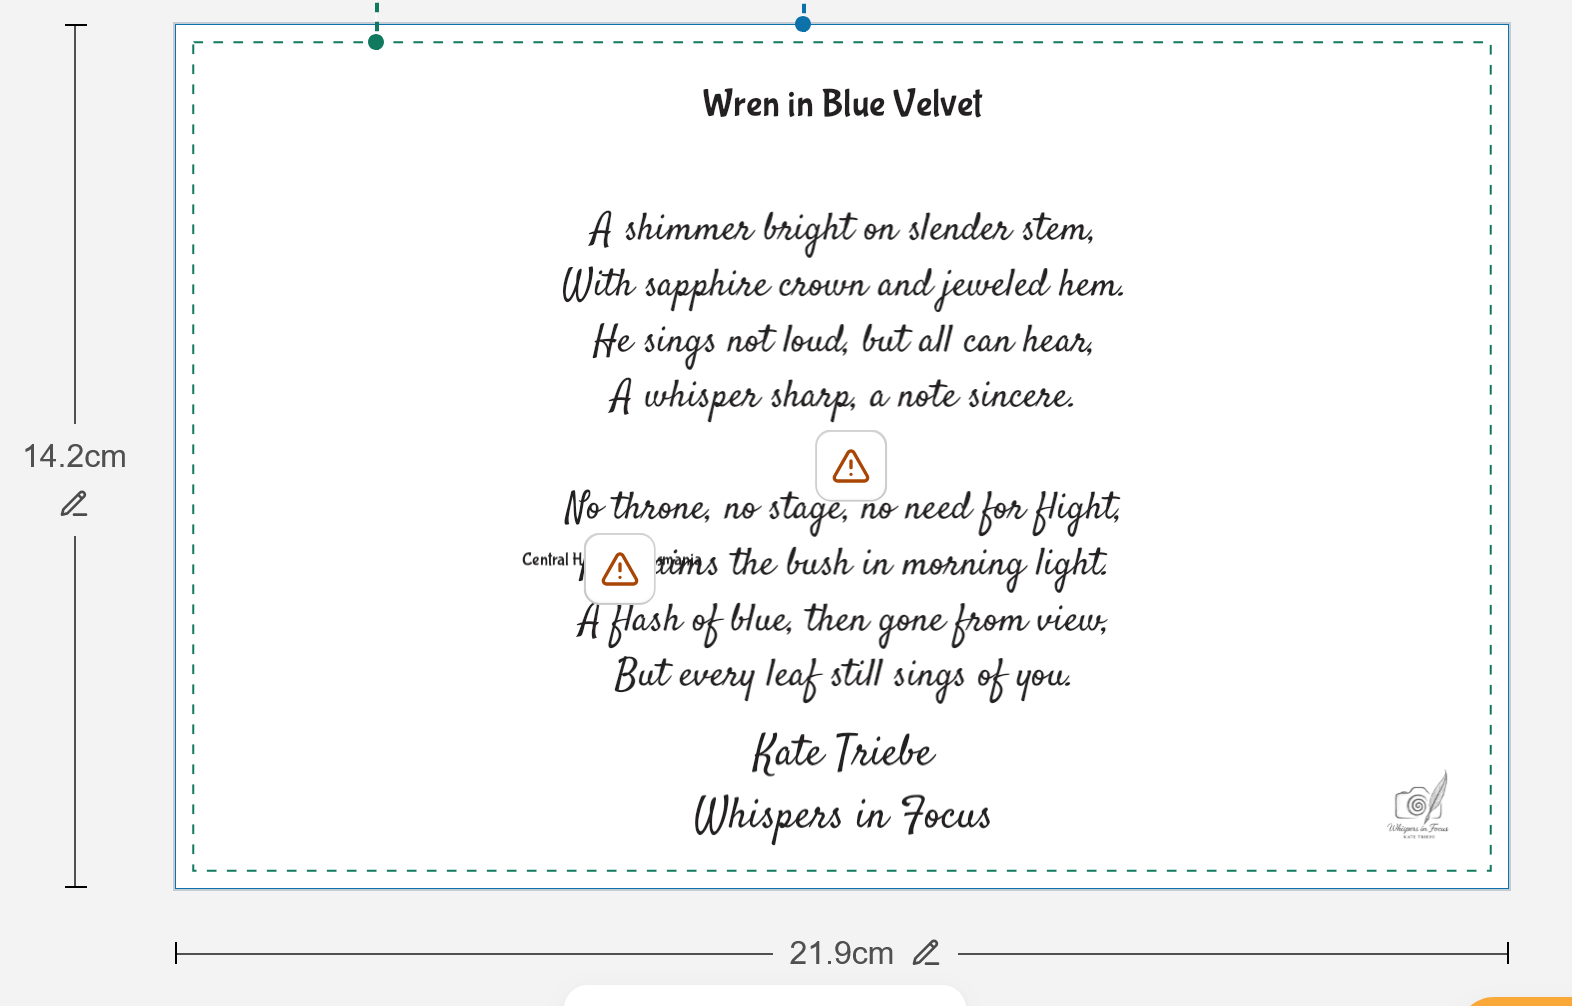 Wren in Blue Velvet
A shimmer bright on slender stem,
With sapphire crown and jeweled hem.
He sings not loud, but all can hear,
A whisper sharp, a note sincere.
No throne, no stage, no need for flight,
Central
the bush in morning light.
A flash of blue, then gone from view,
But every leaf still sings of you.
Kate Triebe
Whispers in Focus
Whispers in Focus
KATE TRIEBE
14.2cm
21.9cm